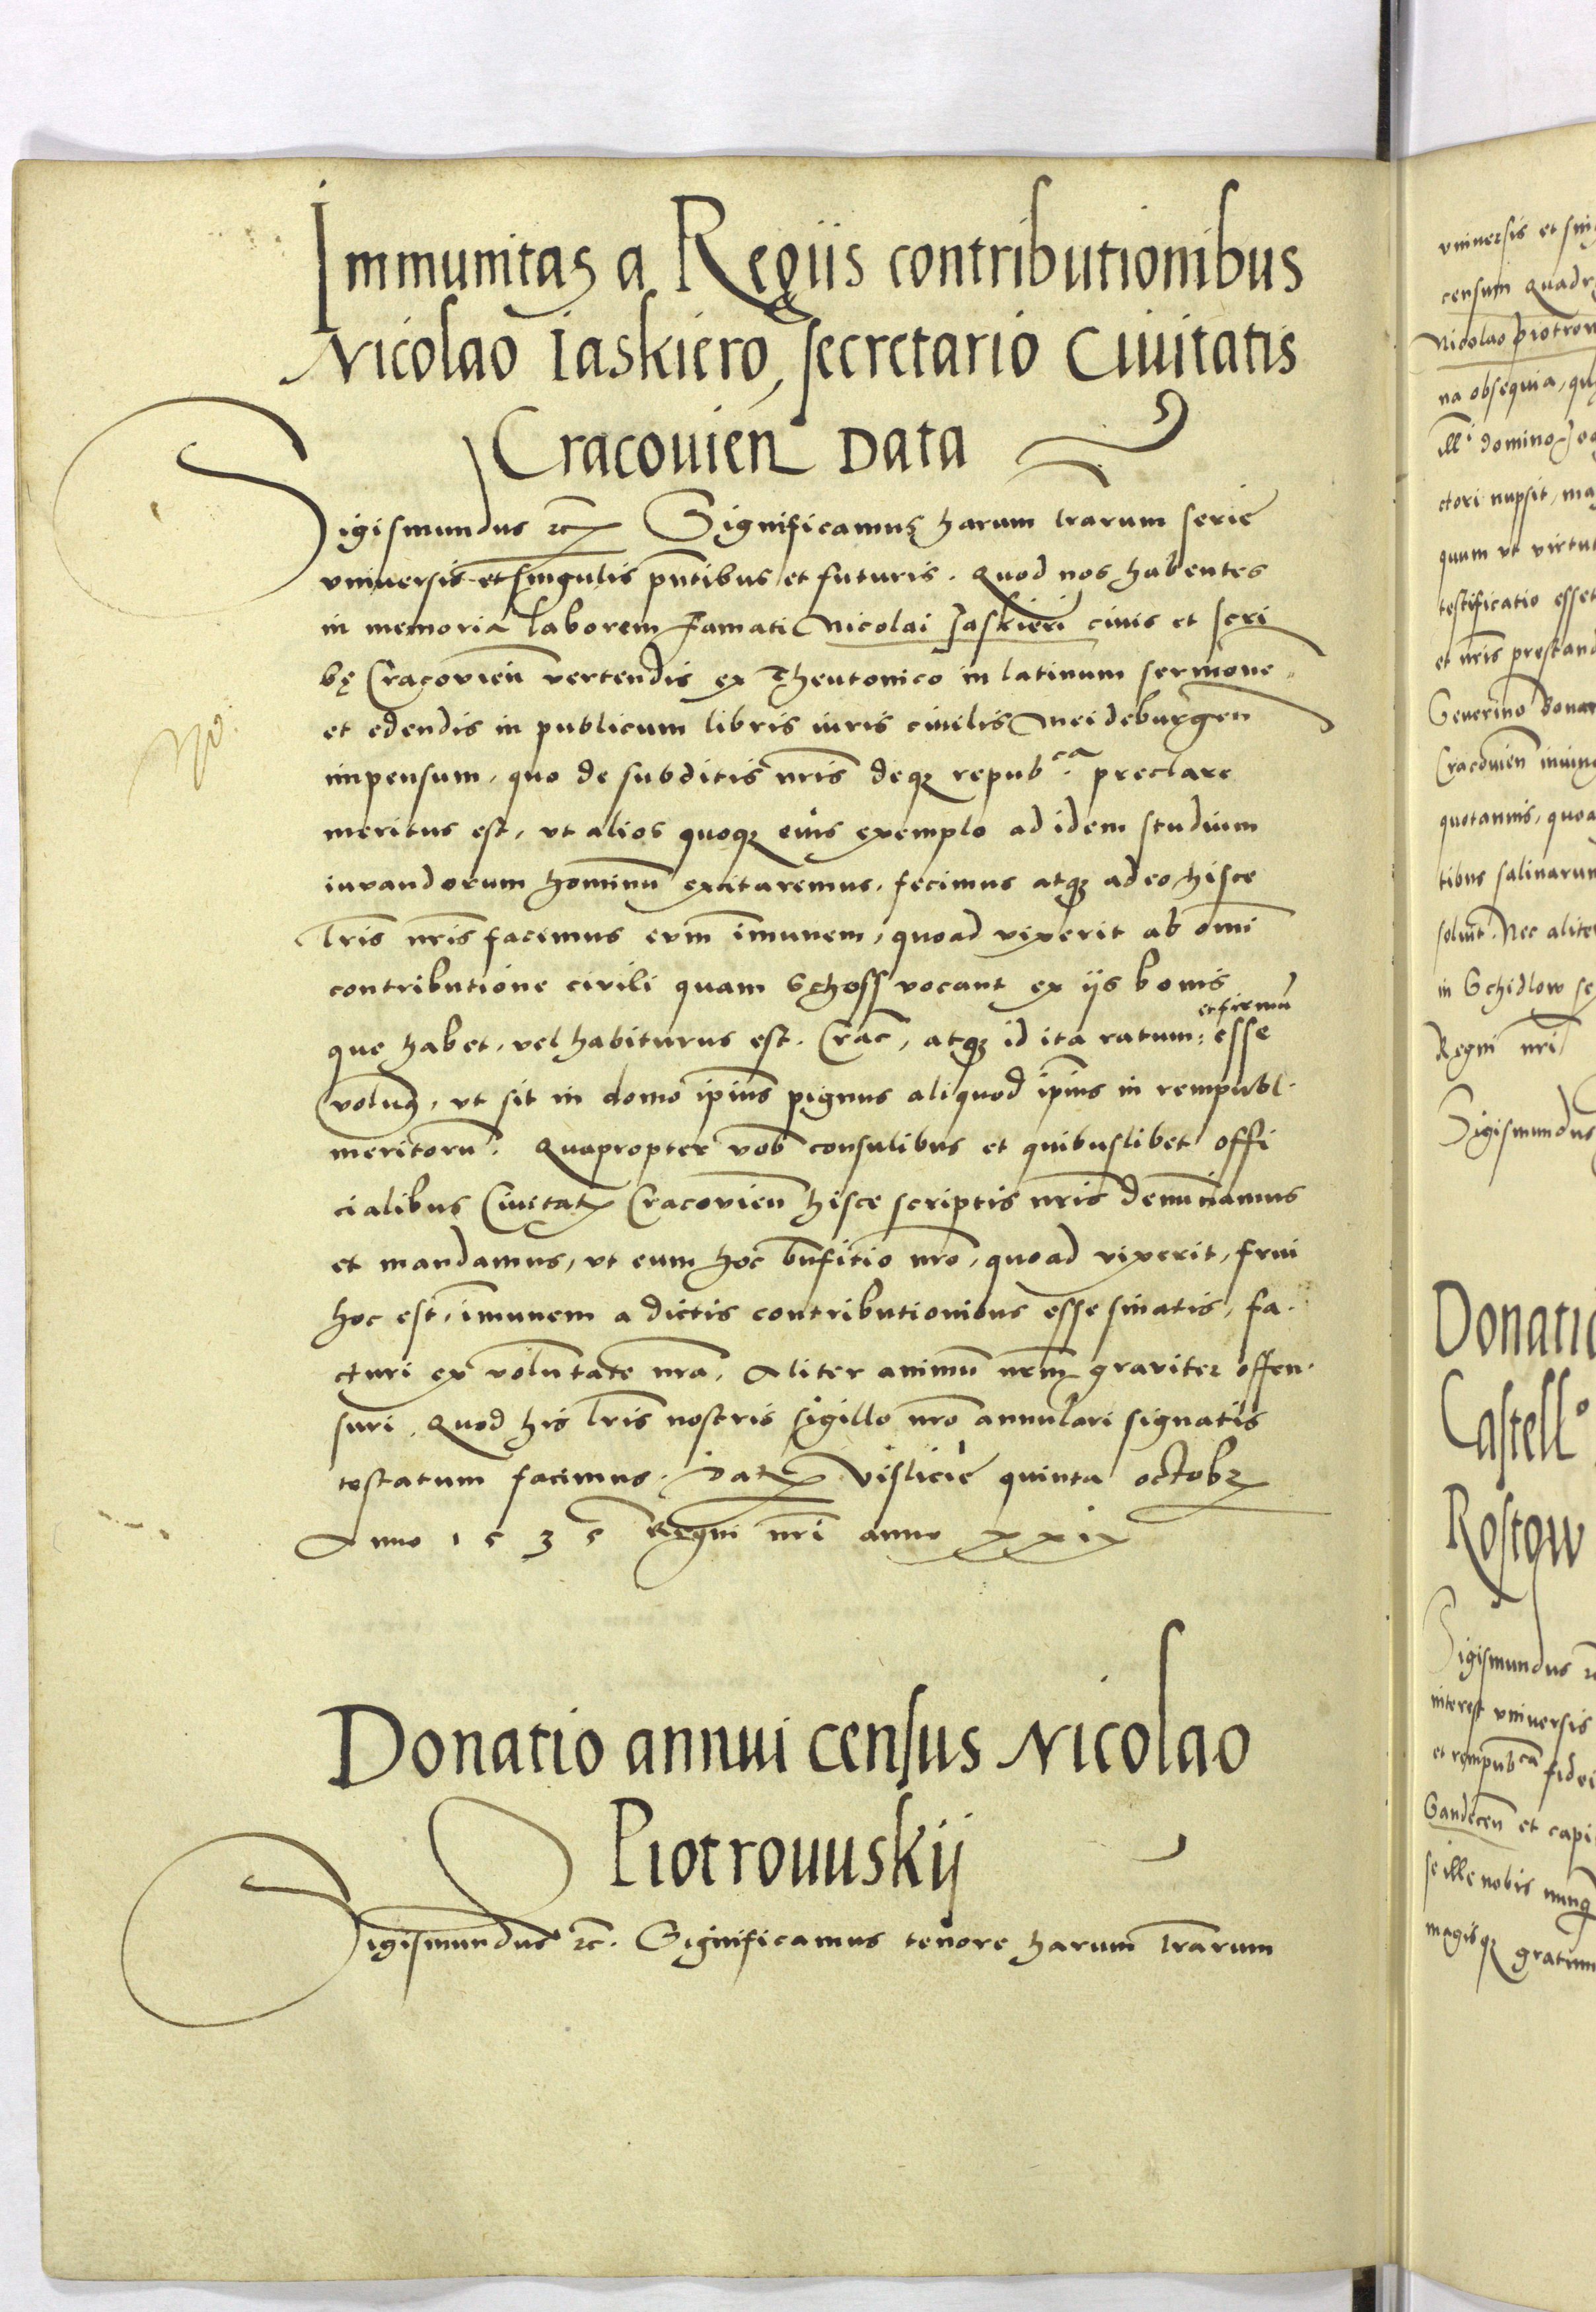 Immunitas a Regiis contributionibus
Nicolao Iaskiero, secretario Ciuitatis
Cracouien Data
Sigismundus etc Significamus harum lrarum serie
vniuersis et singulis pntibus et futuris. Quod nos habentes
in memoria laborem famati Nicolai Jaskieri ciuis et scri
bę Cracovien vertendis ex Theutonico in latinum sermone
et edendis in publicum libris iuris ciuilis Meideburgen
impensum, quo de subditis nris deq repub^ca preclare
meritus est, vt alios quoq eius exemplo ad idem studium
iuvandorum hominu excitaremus, fecimus atq adeo hisce
lris nris facimus eum imunem, quoad vixerit ab omi
contributione civili quam Schoss vocant ex ijs bonis
et firmu
que habet, vel habiturus est. Crac, atq id ita ratum: esse
volum, vt sit in domo ipius pignus aliquod ipius in rempubl.
meritoru. Quapropter vob consulibus et quibuslibet offi
cialibus Ciuitatis Cracovien hisce scriptis nris denunciamus
et mandamus, vt eum hoc bnficio nro, quoad vixerit, frui
hoc est, imunem a dictis contributionibus esse sinatis, fa.
cturi ex voluntate nra, Aliter animu nrm graviter offen.
suri. Quod his lris nostris sigillo nro annulari signatis
testatum facimus. Dat Vislicie quinta octobr
Anno 1535 Regni nri anno xxix
No.
Donatio annui census Nicolao
Piotrouuskij
Sigismundus etc. Significamus tenore harum lrarum
vniuersis et sin
censum Quadr
Nicolao piotrow
na obsequia, qu
ill^i domino
ctori nupsit, ma
quum vt virtut
testificatio esset
et nris prestand
Severino Bonar
Cracovien iniung
quotannis, quoa
tibus salinarum
soluit. Nec alite
in Schidlow se
Regni nri
Sigismundus
Donatio
Castell^o
Rostow
Sigismundus
interest vniuersis
et rempub^ca fidei
Sandecen et capi
se ille nobis nunq
magisq gratum